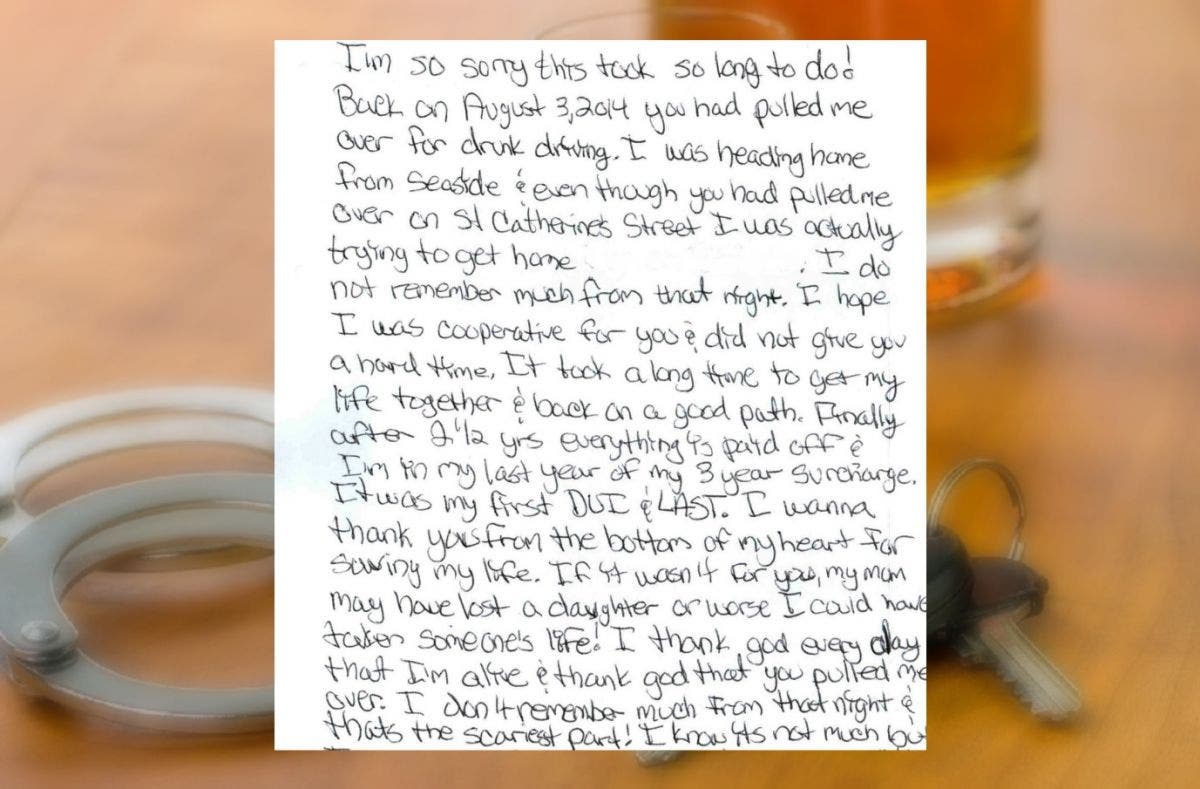 I'm so sorry this took so long to do!
Back on August 3, 2014 you had pulled me
over for drunk driving. I was heading home
from Seaside & even though you had pulled me
over on St Catherine's Street I was actually
trying to get home . I do
not remember much from that night. I hope
I was cooperative for you & did not give you
a hard time. It took a long time to get my
life together & back on a good path. Finally
after 2 1/2 yrs everything is paid off &
I'm in my last year of my 3 year surcharge.
It was my first DUI & LAST. I wanna
thank you from the bottom of my heart for
saving my life. If it wasn't for you, my mom
may have lost a daughter or worse I could have
taken someone's life! I thank god every day
that I'm alive & thank god that you pulled me
over. I don't remember much from that night &
thats the scariest part! I know its not much bu